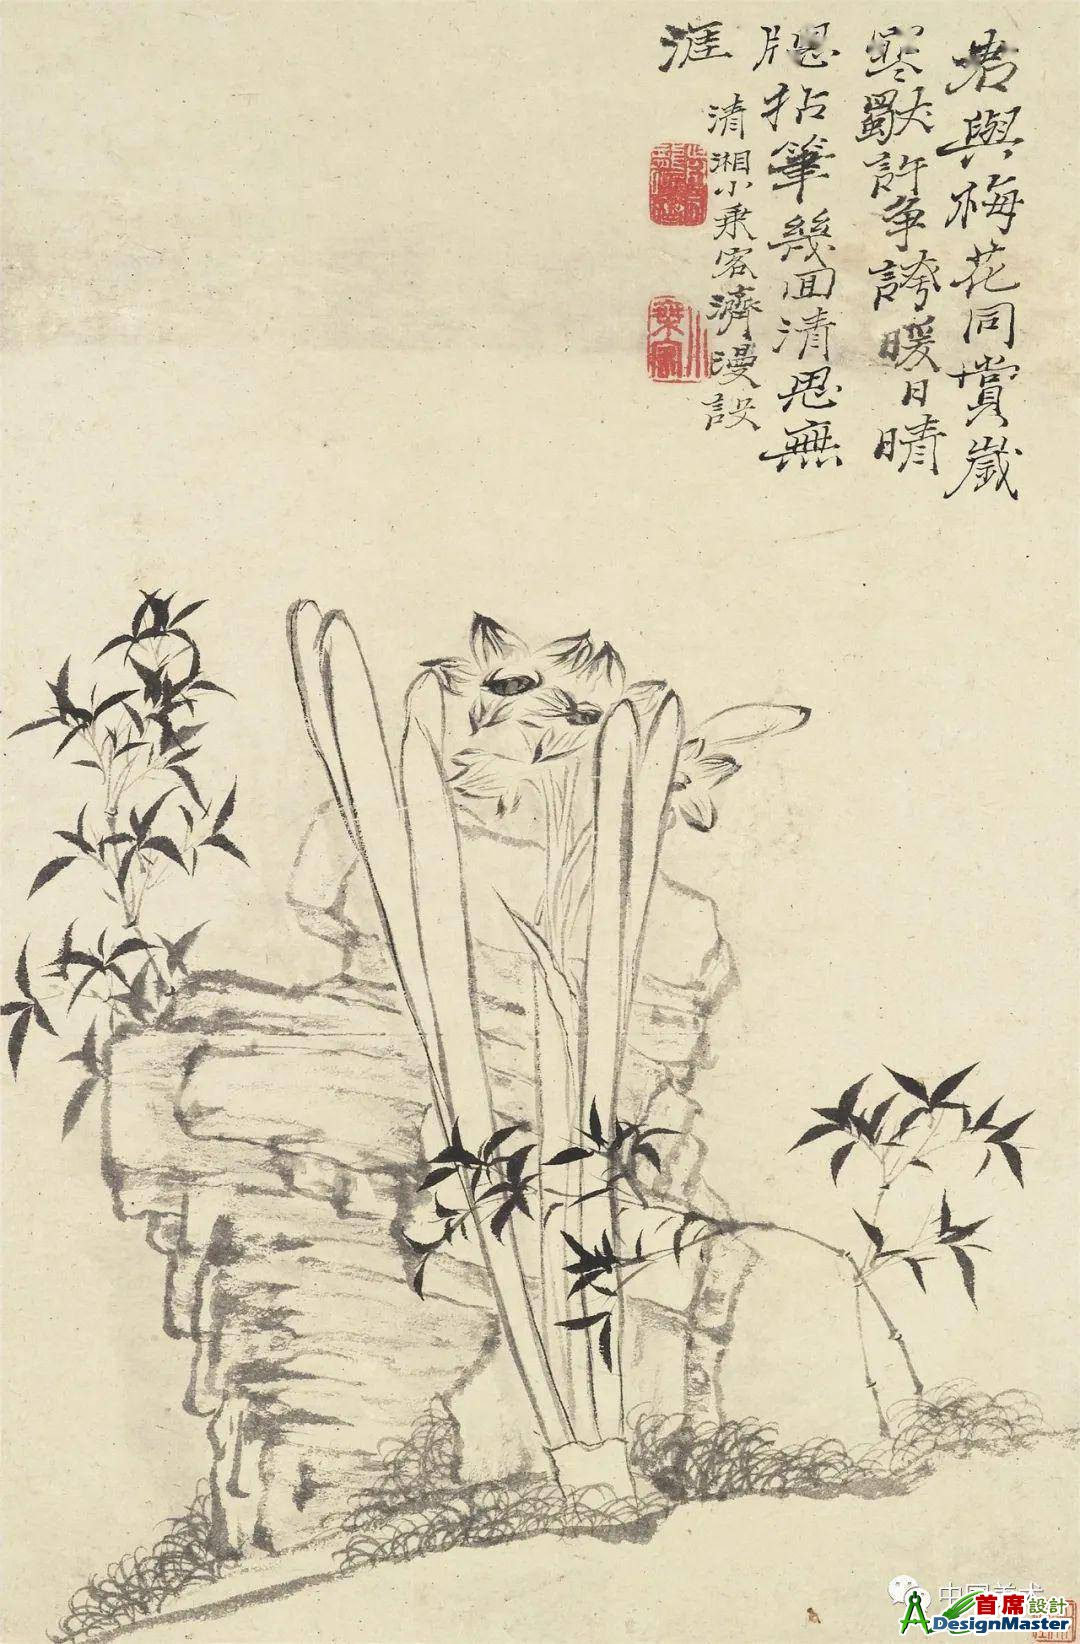 君與梅花同賞歲
寒獨許爭誇暖日晴
牕拈筆幾回清思無
涯
清湘小乘客濟漫設
小乘客
中国美术
首席設計
ADesignMaster